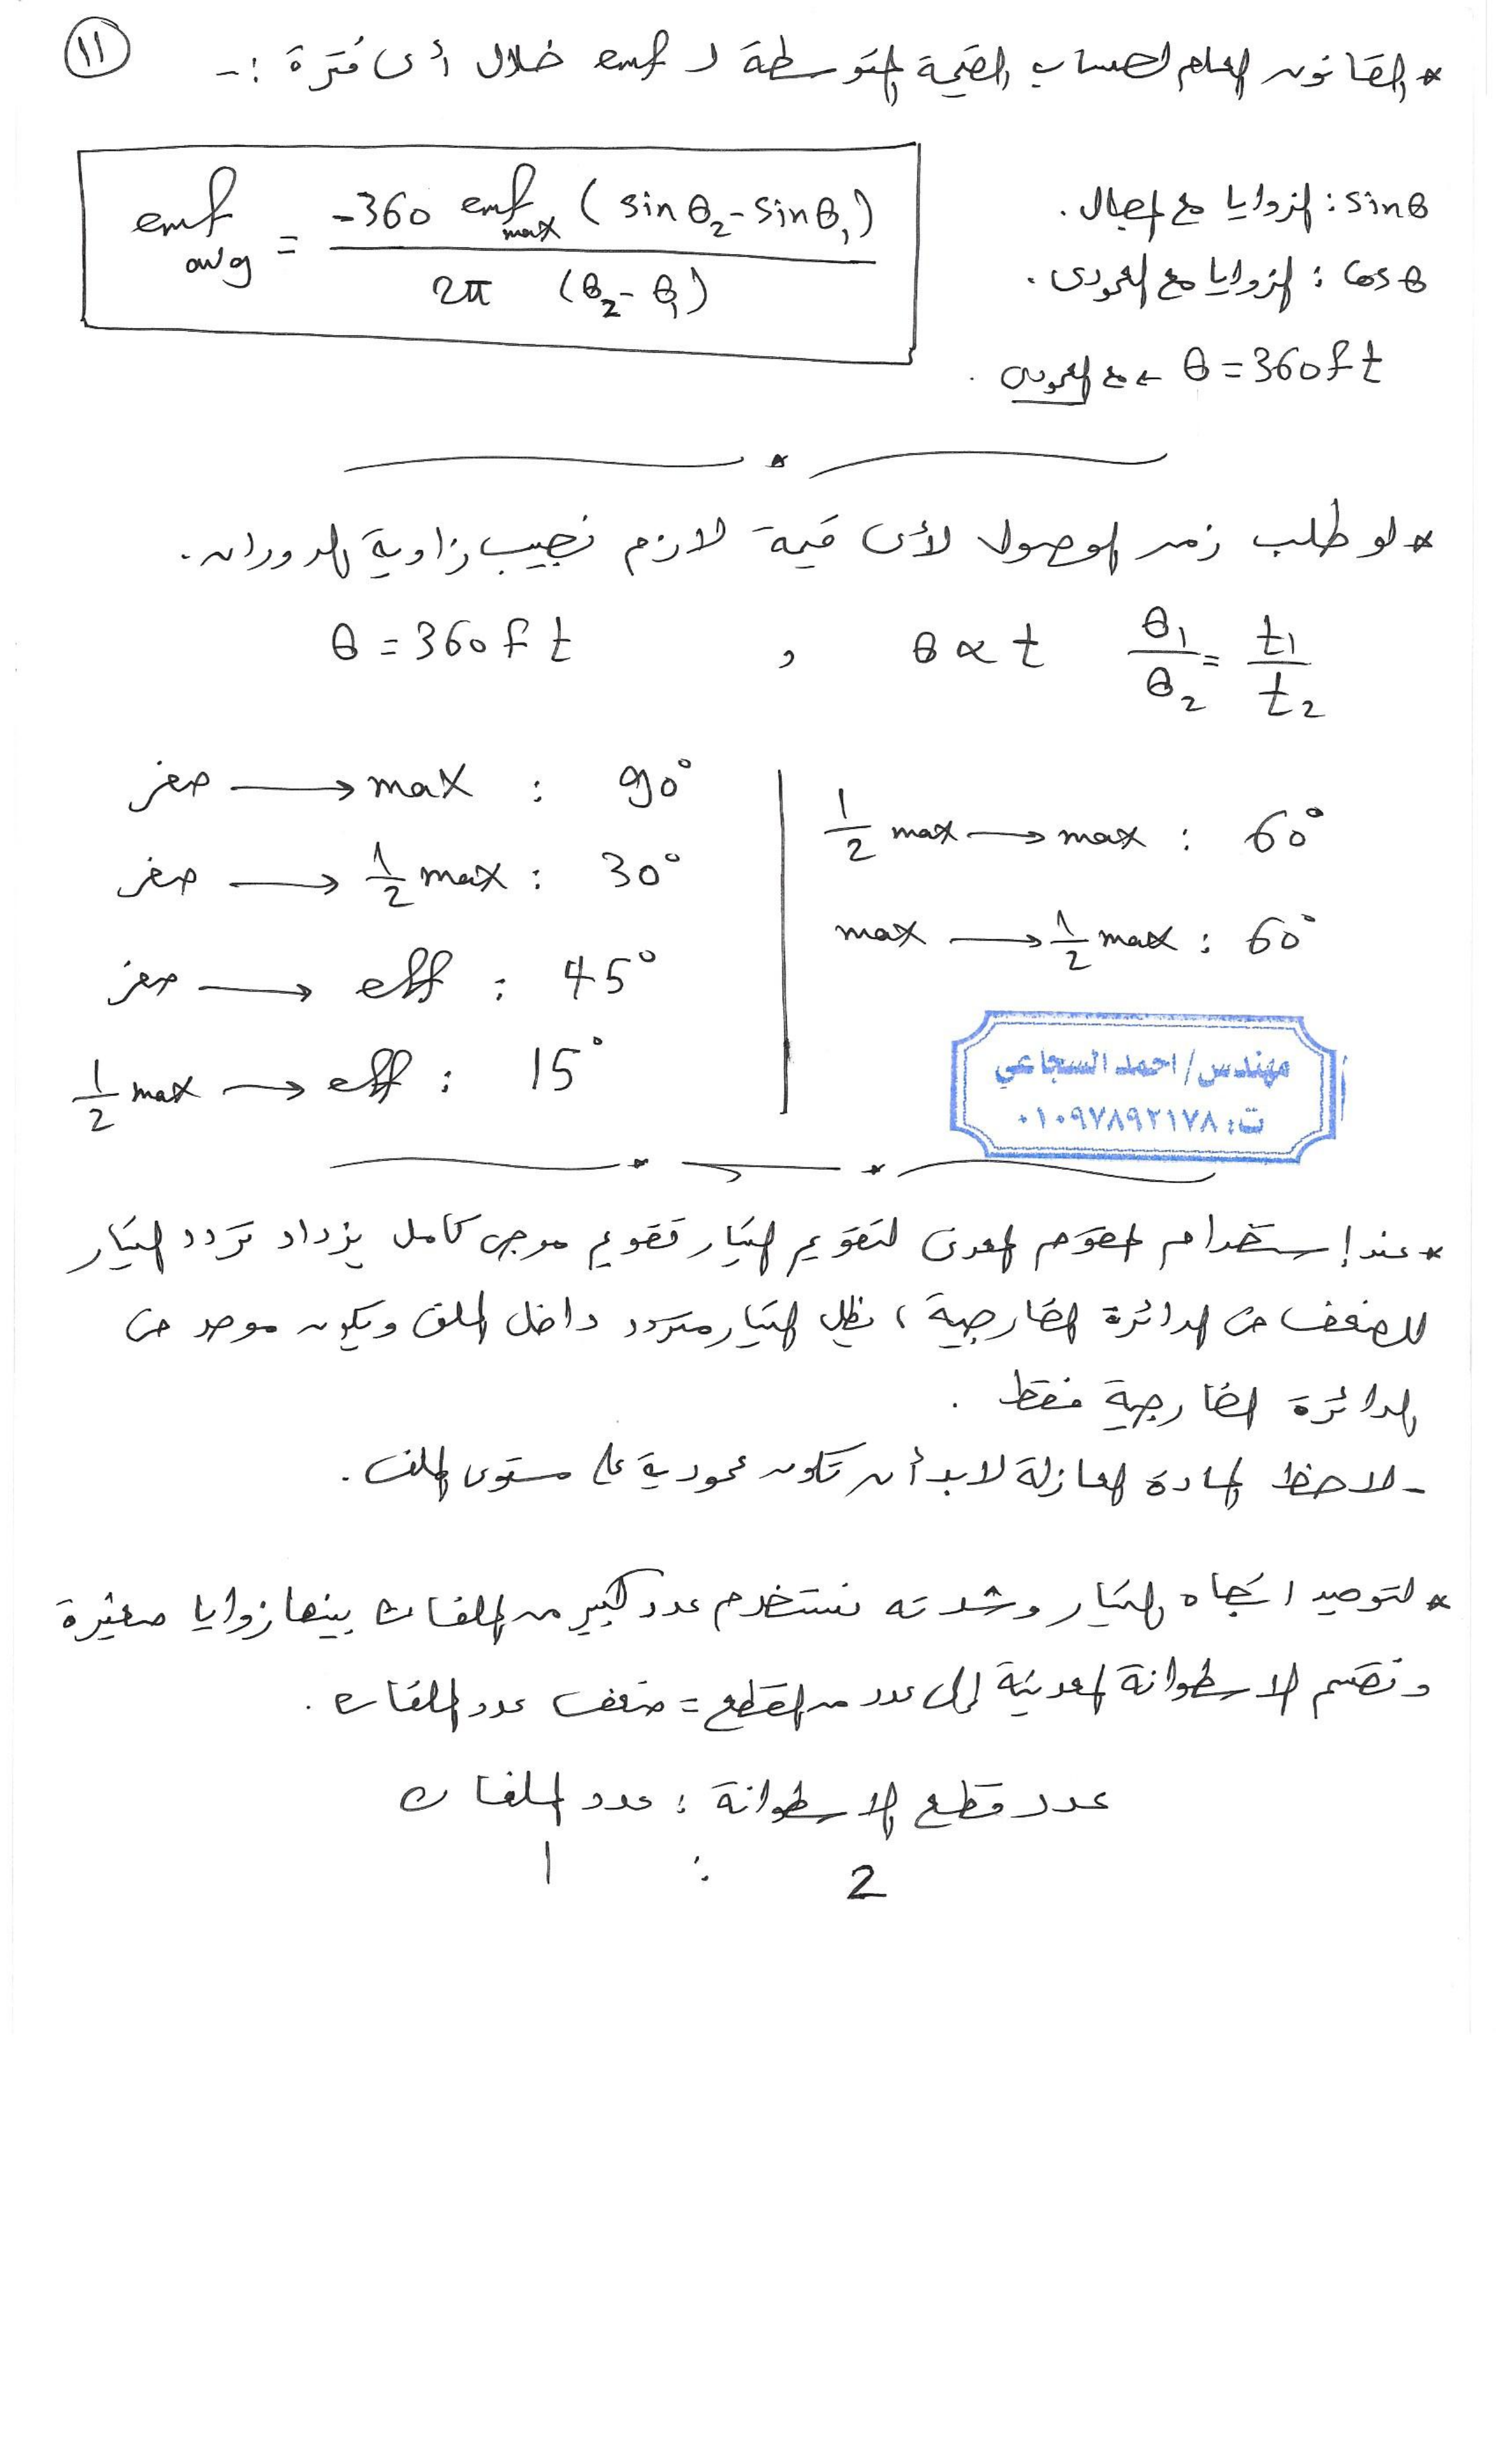 ١١
* القانون العام لحساب القيمة المتوسطة لـ emf خلال أى فترة :-
emf avg = -360 emf max (sin θ₂ - sin θ₁) / 2π (θ₂ - θ₁)
sin θ : الزوايا مع المجال.
cos θ : الزوايا مع العمودى.
θ = 360 f t ← مع العمودى.
* لو طلب زمن الوصول لأى قيمة لازم نجيب زاوية الدوران.
θ = 360 f t , θ ∝ t θ₁/θ₂ = t₁/t₂
صفر → max : 90°
صفر → 1/2 max : 30°
صفر → eff : 45°
1/2 max → eff : 15°
1/2 max → max : 60°
max → 1/2 max : 60°
مهندس/ احمد السجاعي
ت: ٠١٠٩٧٨٩٢١٧٨
* عند إستخدام المقوم المعدنى لتقويم التيار تقويم موجى كامل يزداد تردد التيار
للضعف فى الدائرة الخارجية ، يظل التيار متردد داخل الملف ويكون موحد فى
الدائرة الخارجية فقط .
- لاحظ المادة العازلة لابد أن تكون عمودية على مستوى الملف.
* لتوحيد اتجاه التيار وشدته نستخدم عدد كبير من الملفات بينها زوايا صغيرة
ونقسم الاسطوانة المعدنية إلى عدد من القطع = ضعف عدد الملفات .
عدد قطع الاسطوانة : عدد الملفات
2 : 1